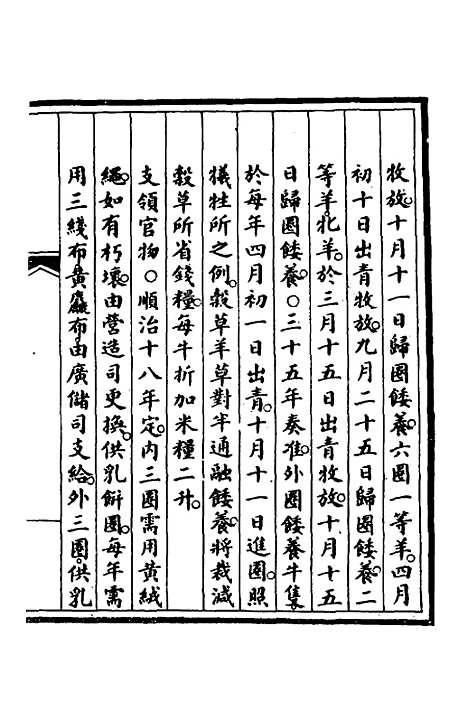 牧放。十月十一日歸圈餧養。六圈一等羊。四月
初十日出青牧放。九月二十五日歸圈餧養。二
等羊。牝羊。於三月十五日出青牧放。十月十五
日歸圈餧養。○三十五年奏准。外圈餧養牛隻
於每年四月初一日出青。十月十一日進圈。照
犧牲所之例。穀草羊草對半通融餧養。將裁減
穀草所省錢糧。每牛折加米糧二升。
支領官物○順治十八年定。內三圈需用黃絨
繩。如有朽壞。由營造司更換。供乳餅圈。每年需
用三綫布黃麤布。由廣儲司支給。外三圈。供乳